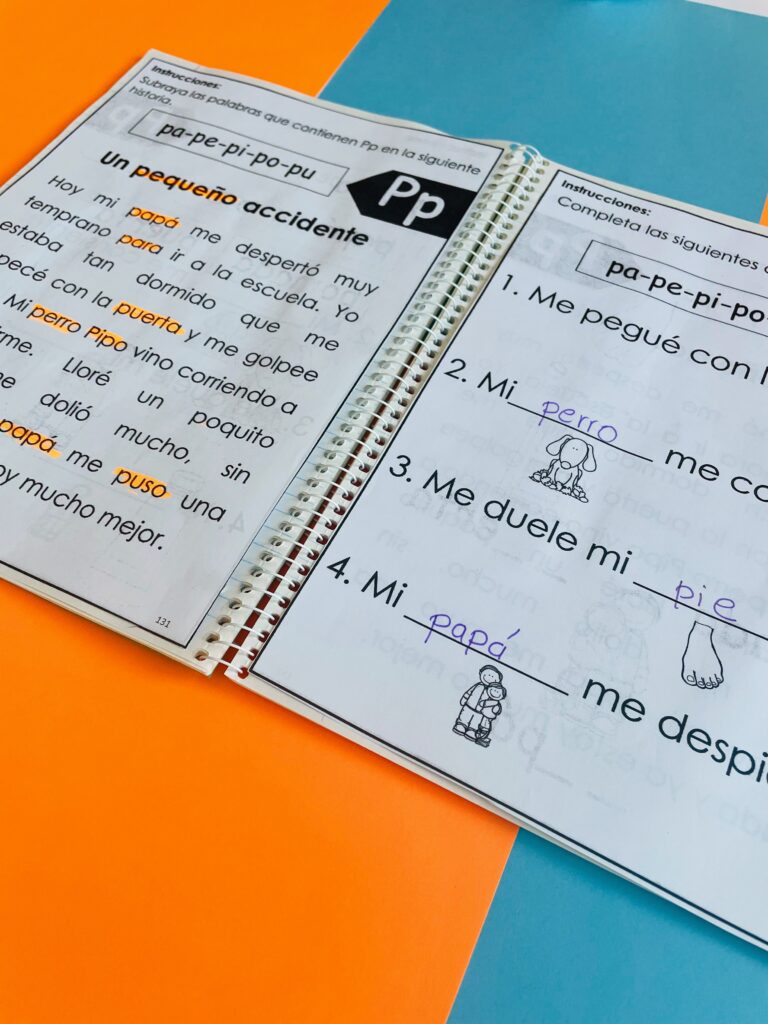 Instrucciones:
Subraya las palabras que contienen Pp en la siguiente
historia.
pa-pe-pi-po-pu
Pp
Un pequeño accidente
Hoy mi papá me despertó muy
temprano para ir a la escuela. Yo
estaba tan dormido que me
pecé con la puerta y me golpee
Mi perro Pipo vino corriendo a
rme. Lloré un poquito
me dolió mucho, sin
papá me puso una
oy mucho mejor.
131
Instrucciones:
Completa las siguientes
pa-pe-pi-po-
1. Me pegué con l
2. Mi perro me co
3. Me duele mi pie
4. Mi papá me despi